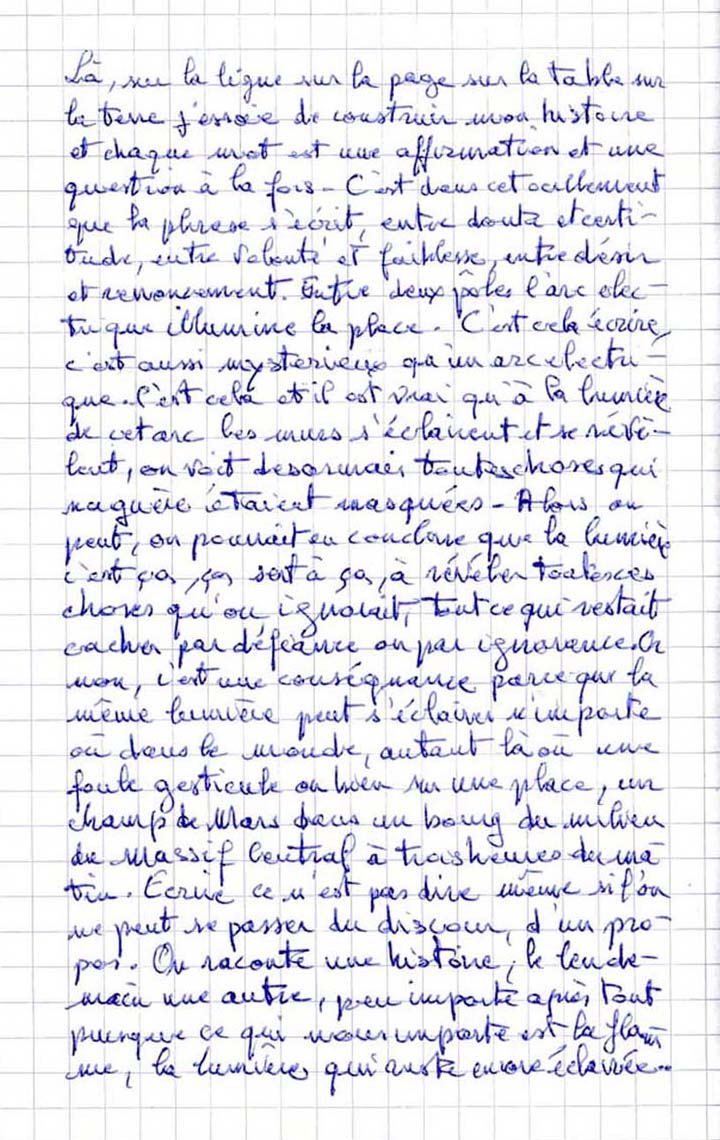 Là, sur la ligne sur la page sur la table sur
la terre j'essaie de construire mon histoire
et chaque mot est une affirmation et une
question à la fois - C'est dans cet oscillement
que la phrase s'écrit, entre doute et certi-
tude, entre volonté et faiblesse, entre désir
et renoncement. Entre deux pôles l'arc élec-
trique illumine la place. C'est cela écrire,
c'est aussi mystérieux qu'un arc électri-
que. C'est cela et il est vrai qu'à la lumière
de cet arc les murs s'éclairent et se révè-
lent, on voit desormais toutes choses qui
naguère étaient masquées - Alors on
peut, on pourrait en conclure que la lumière
c'est ça, ça sert à ça, à révéler toutes ces
choses qu'on ignorait, tout ce qui restait
cacher par défiance ou par ignorance. Or
non, c'est une conséquance parce que la
même lumière peut s'éclairer n'importe
où dans le monde, autant là où une
foule gesticule ou bien sur une place, un
champ de Mars dans un bourg du milieu
du Massif Central à trois heures du ma
tin. Ecrire ce n'est pas dire même si l'on
ne peut se passer du discour, d'un pro-
pos. On raconte une histoire, le lende-
main une autre, peu importe après tout
puisque ce qui nous importe est la flam
me, la lumière qui reste encore éclairée..